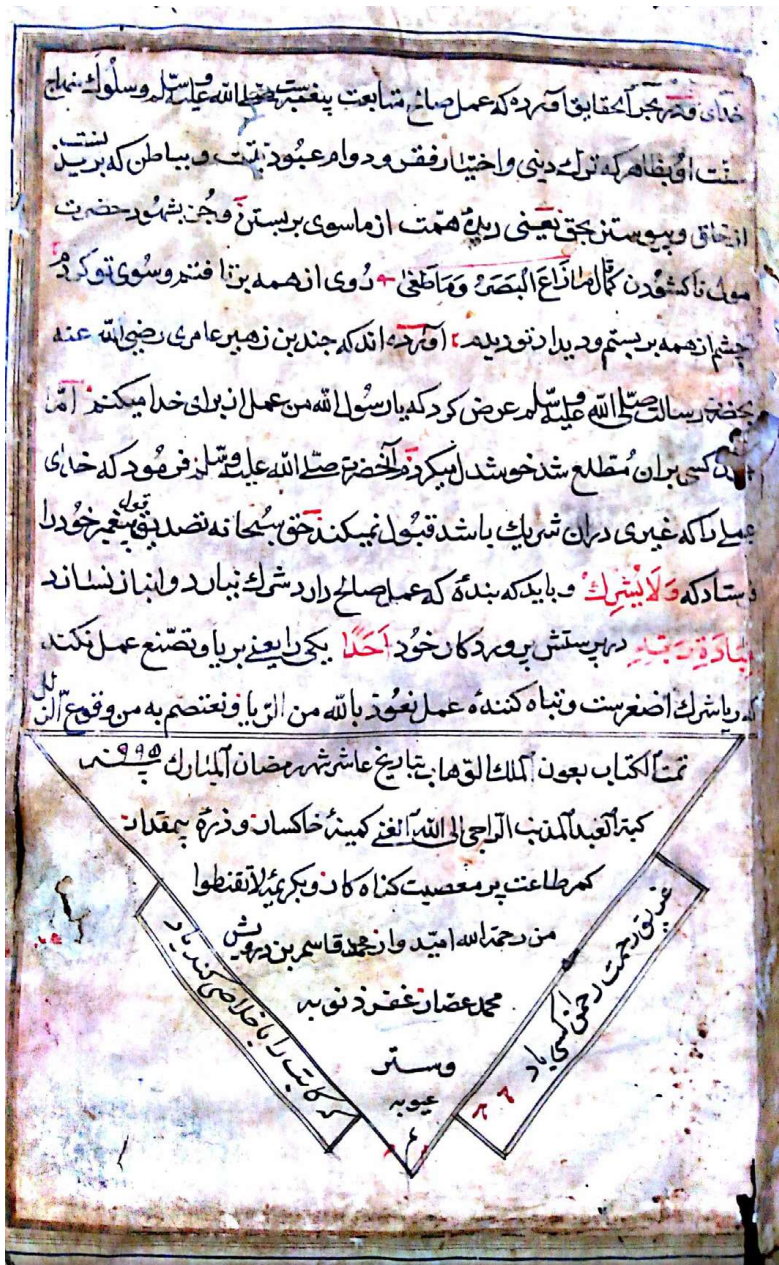 خدای و در بحر الحقایق آورده که عمل صالح متابعت پیغمبرست صلی الله علیه وسلم وسلوك بنهاج
سنت او بظاهر که ترك دینی واختیار فقر و دوام عبودیتت و بباطن که بریدنست
از خلق و پیوستن بحق یعنی دیدۀ همت از ماسوی بربستن و جز بشهود حضرت
مولی ناکشودن کمال ما زاغ البصر وما طغی روی از همه برتافتم وسوی تو کردم
چشم از همه بربستم و دیدار تو دیدم آورده اند که جندب بن زهیر عامری رضی الله عنه
بحضرت رسالت صلی الله علیه وسلم عرض کرد که یا رسول الله من عمل از برای خدا میکنم اما
کسی بران مطلع شد خوشدل میکردم آنحضرت صلی الله علیه وسلم فرمود که خدای
عملی را که غیری دران شریك باشد قبول نمیکند حق سبحانه تصدیق قول پیغمبر خود را
فرستاد که ولا یشرك و باید که بندۀ که عمل صالح دارد شرك نیارد وانباز نسازد
بعبادة ربه در پرستش پروردکار خود احدا یکی را یعنی بریا وتصنع عمل نکند
که ریا شرك اصغرست وتباه کنندۀ عمل نعوذ بالله من الریا ونعتصم به من وقوع الزلل
تمت الکتاب بعون الملك الوهاب بتاریخ عاشر شهر رمضان المبارك سنه ۹۹۵
کتبه العبد المذنب الراجی الی الله الغنی کمینۀ خاکسار و ذرۀ بیمقدار
کم طاعت پر معصیت کناه کار و بکریمۀ لا تقنطوا
من رحمة الله امیدوار محمد قاسم بن درویش
محمد عصار غفر ذنوبه
وستر
عیوبه
غریق رحمت رحمن کسی باد
که کاتب را باخلاصی کند یاد